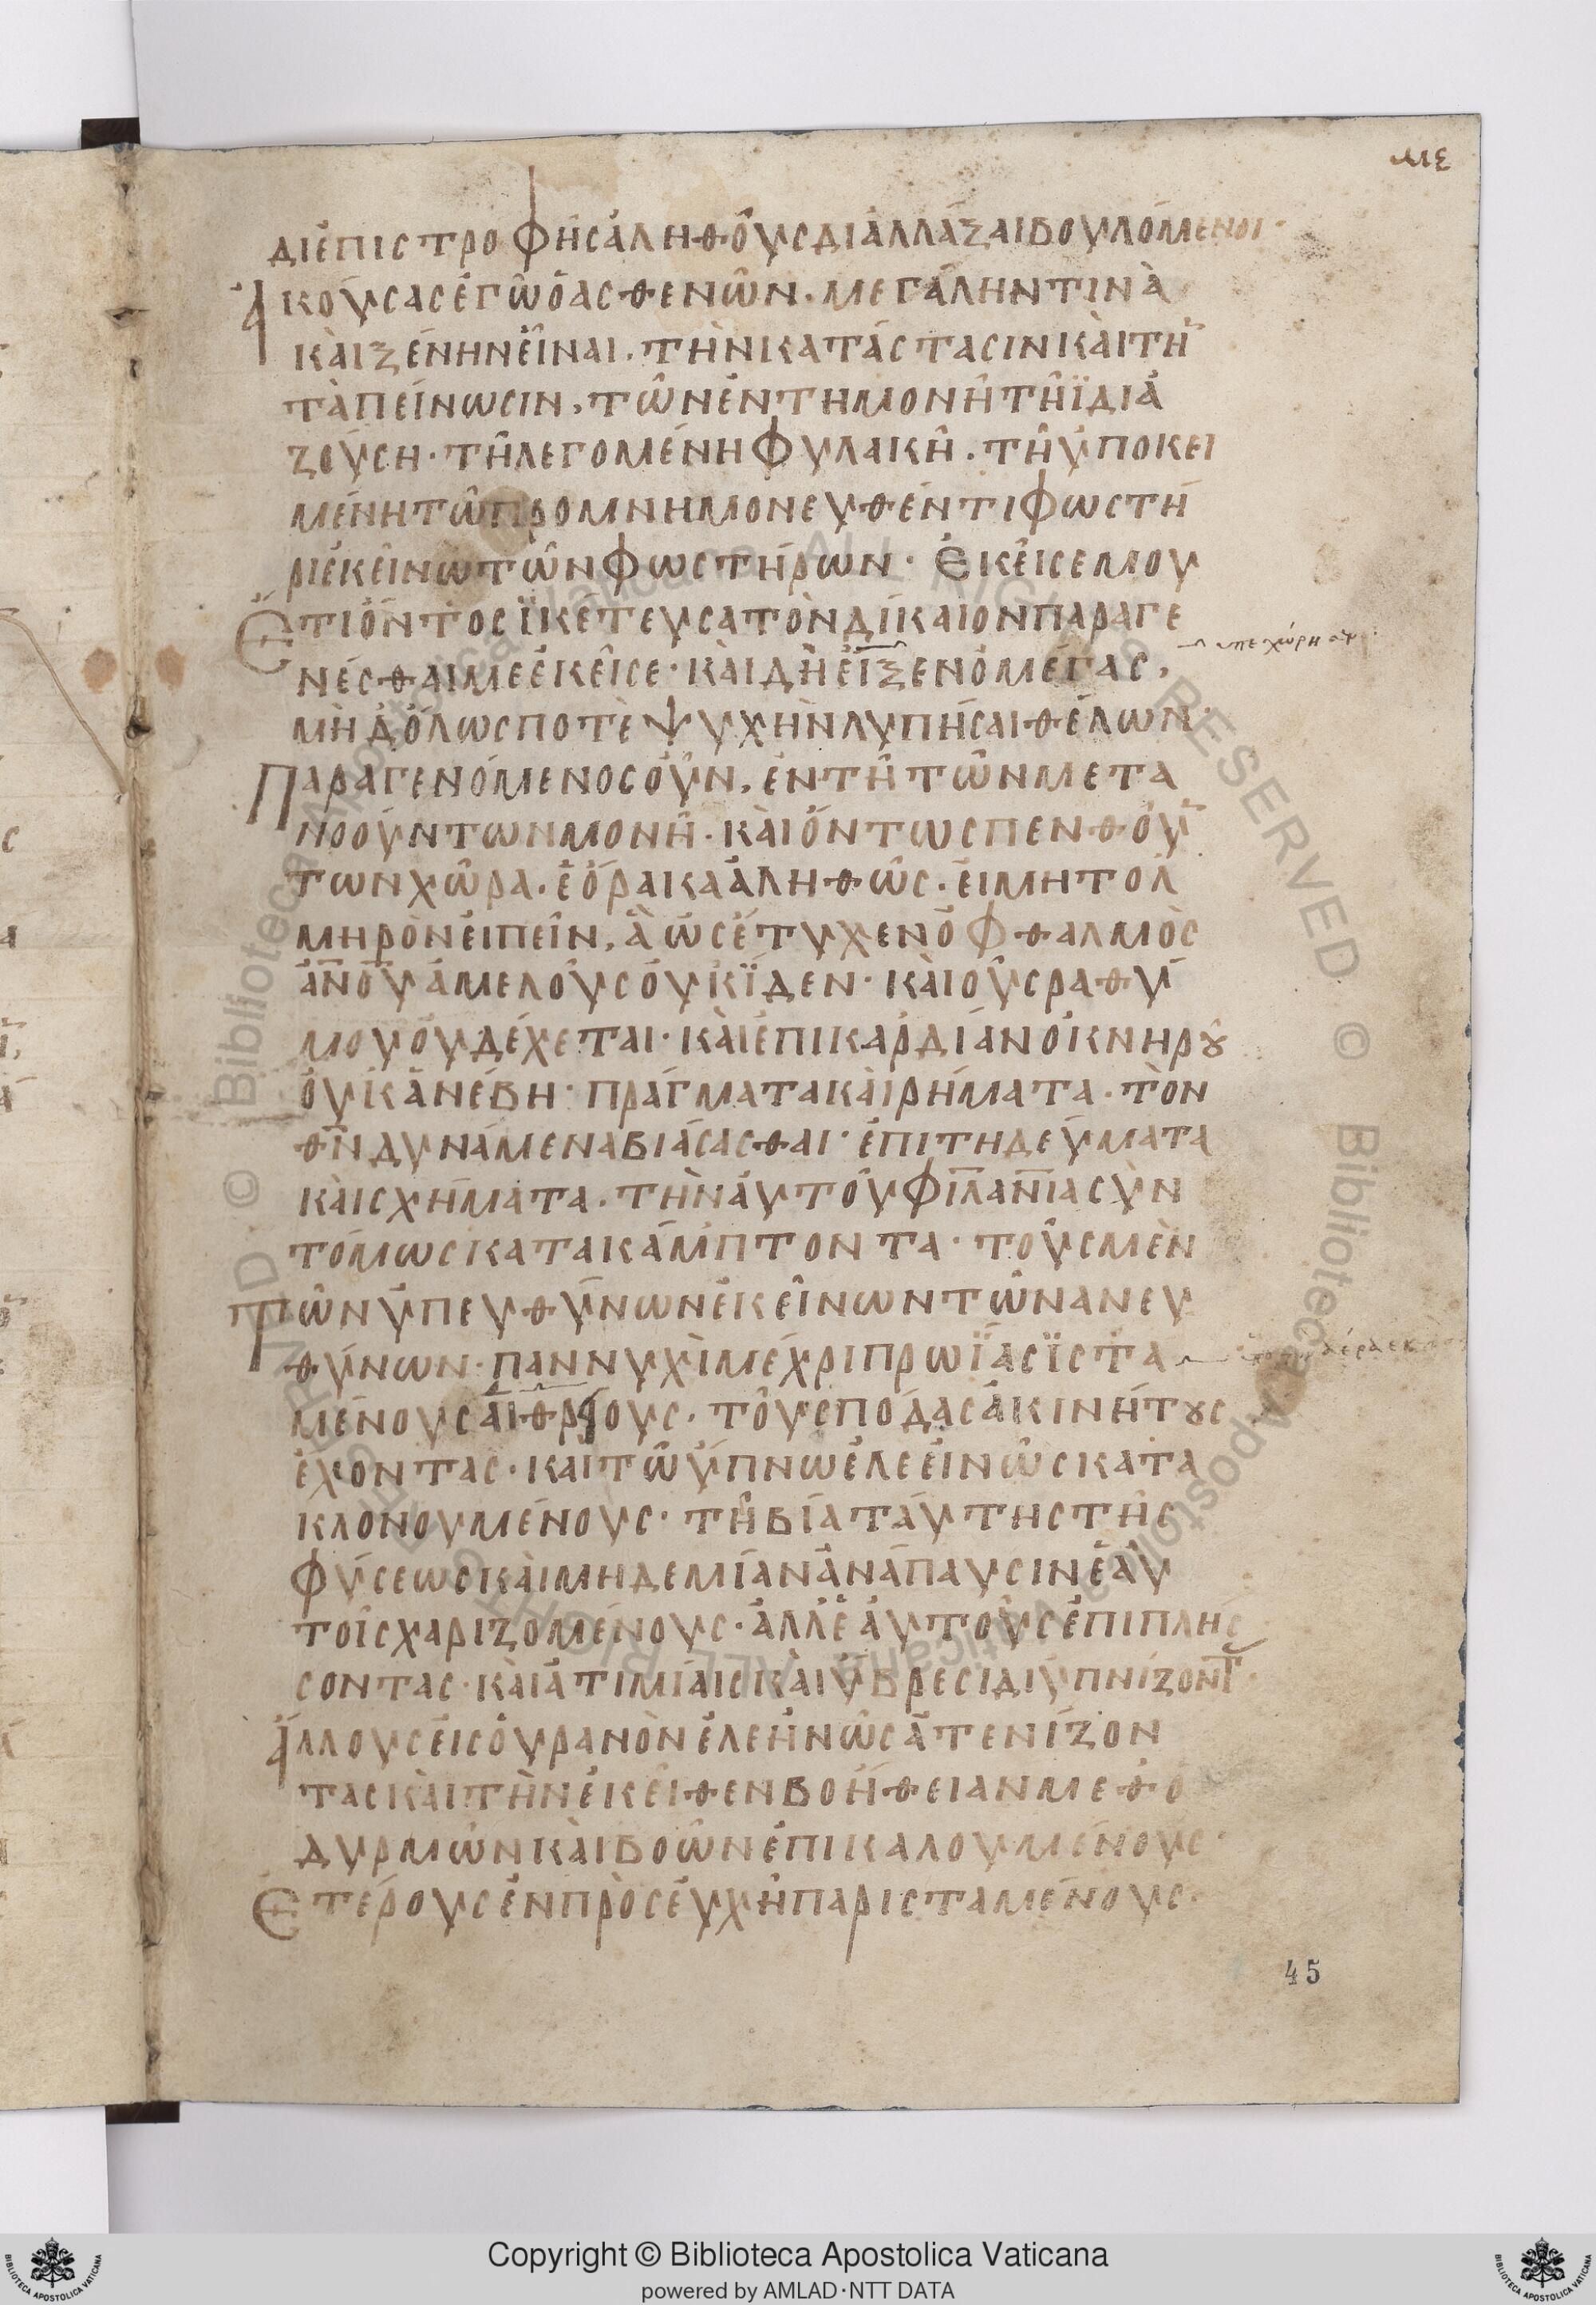 με
διἐπιστροφῆςἀληθοῦςδιαλλάξαιβουλόμενοι·
Ἀκούσαςἐγὼὁασθενῶν·μεγάληντινὰ
καὶξένηνεἶναι·τὴνκατάστασινκαὶτὴ̅
ταπείνωσιν,τῶνἐντημονῆτῆϊδιὰ
ζούση·τῆλεγομένηφυλακῆ·τῆὑποκει
μένητῶπρομνημονευθέντιφωστῆ
ριἐκείνωτῶνφωστήρων·ἐκεῖσεμου
Ἔτιὄντοςϊκέτευσατὸνδίκαιονπαραγε
νέσθαιμεἐκεῖσε·καὶδὴεἶξενὁμέγας,
υπεχώρησεν
μὴδόλωςποτὲψυχὴνλυπῆσαιθέλων·
Παραγενόμενοςοὖν,ἐντῆτῶνμετα
νοούντωνμονῆ·καὶὄντωςπενθού̅
τωνχώρα·ἑόρακαἀληθῶς·εἰμητολ
μηρὸνεἰπεῖν,ἃὡςἔτυχενὀφθαλμὸς
ἀν̅ο̅υ̅ἀμελοῦςοὐκἴδεν·καὶοὖςραθύ
μουοὐδέχεται·καὶἐπικαρδίανὀκνηρȣ
οὐκἀνέβη·πράγματακαὶρήματα·τὸν
θν̅δυνάμεναβιάσασθαι·ἐπιτηδεύματα
καὶσχήματα·τὴναὐτοῦφιλαν̅ιασὺν
τόμωςκατακάμπτοντα·τοὺςμὲν
Τῶνὑπευθύνωνἐκείνωντῶνανευ
θύνων·παννυχὶμέχριπρωΐαςϊστα
μένουςαἰθρίους·τοὺςπόδαςἀκινήτȣς
ἔχοντας·καὶτῶὕπνωἐλεεινῶςκατα
κλονουμένους·τῆβίαταύτηςτῆς
φύσεωςκαὶμηδεμίανἀνάπαυσινἑαυ
τοῖςχαριζομένους·ἀλλἑαυτοὺςἐπιπλήσ
σοντας·καὶἀτιμίαιςκαὶὕβρεσιδιϋπνίζοντ̅
Ἄλλουςεἰςοὐρανὸνἐλεηνῶςἀτενίζον
ταςκαὶτὴνἐκεῖθενβοήθειανμεθὀ
δυρμῶνκαὶβοῶνἐπικαλουμένους·
Ἑτέρουςἐνπροσευχῆπαρισταμένους·
45
Copyright © Biblioteca Apostolica Vaticana
powered by AMLAD·NTT DATA